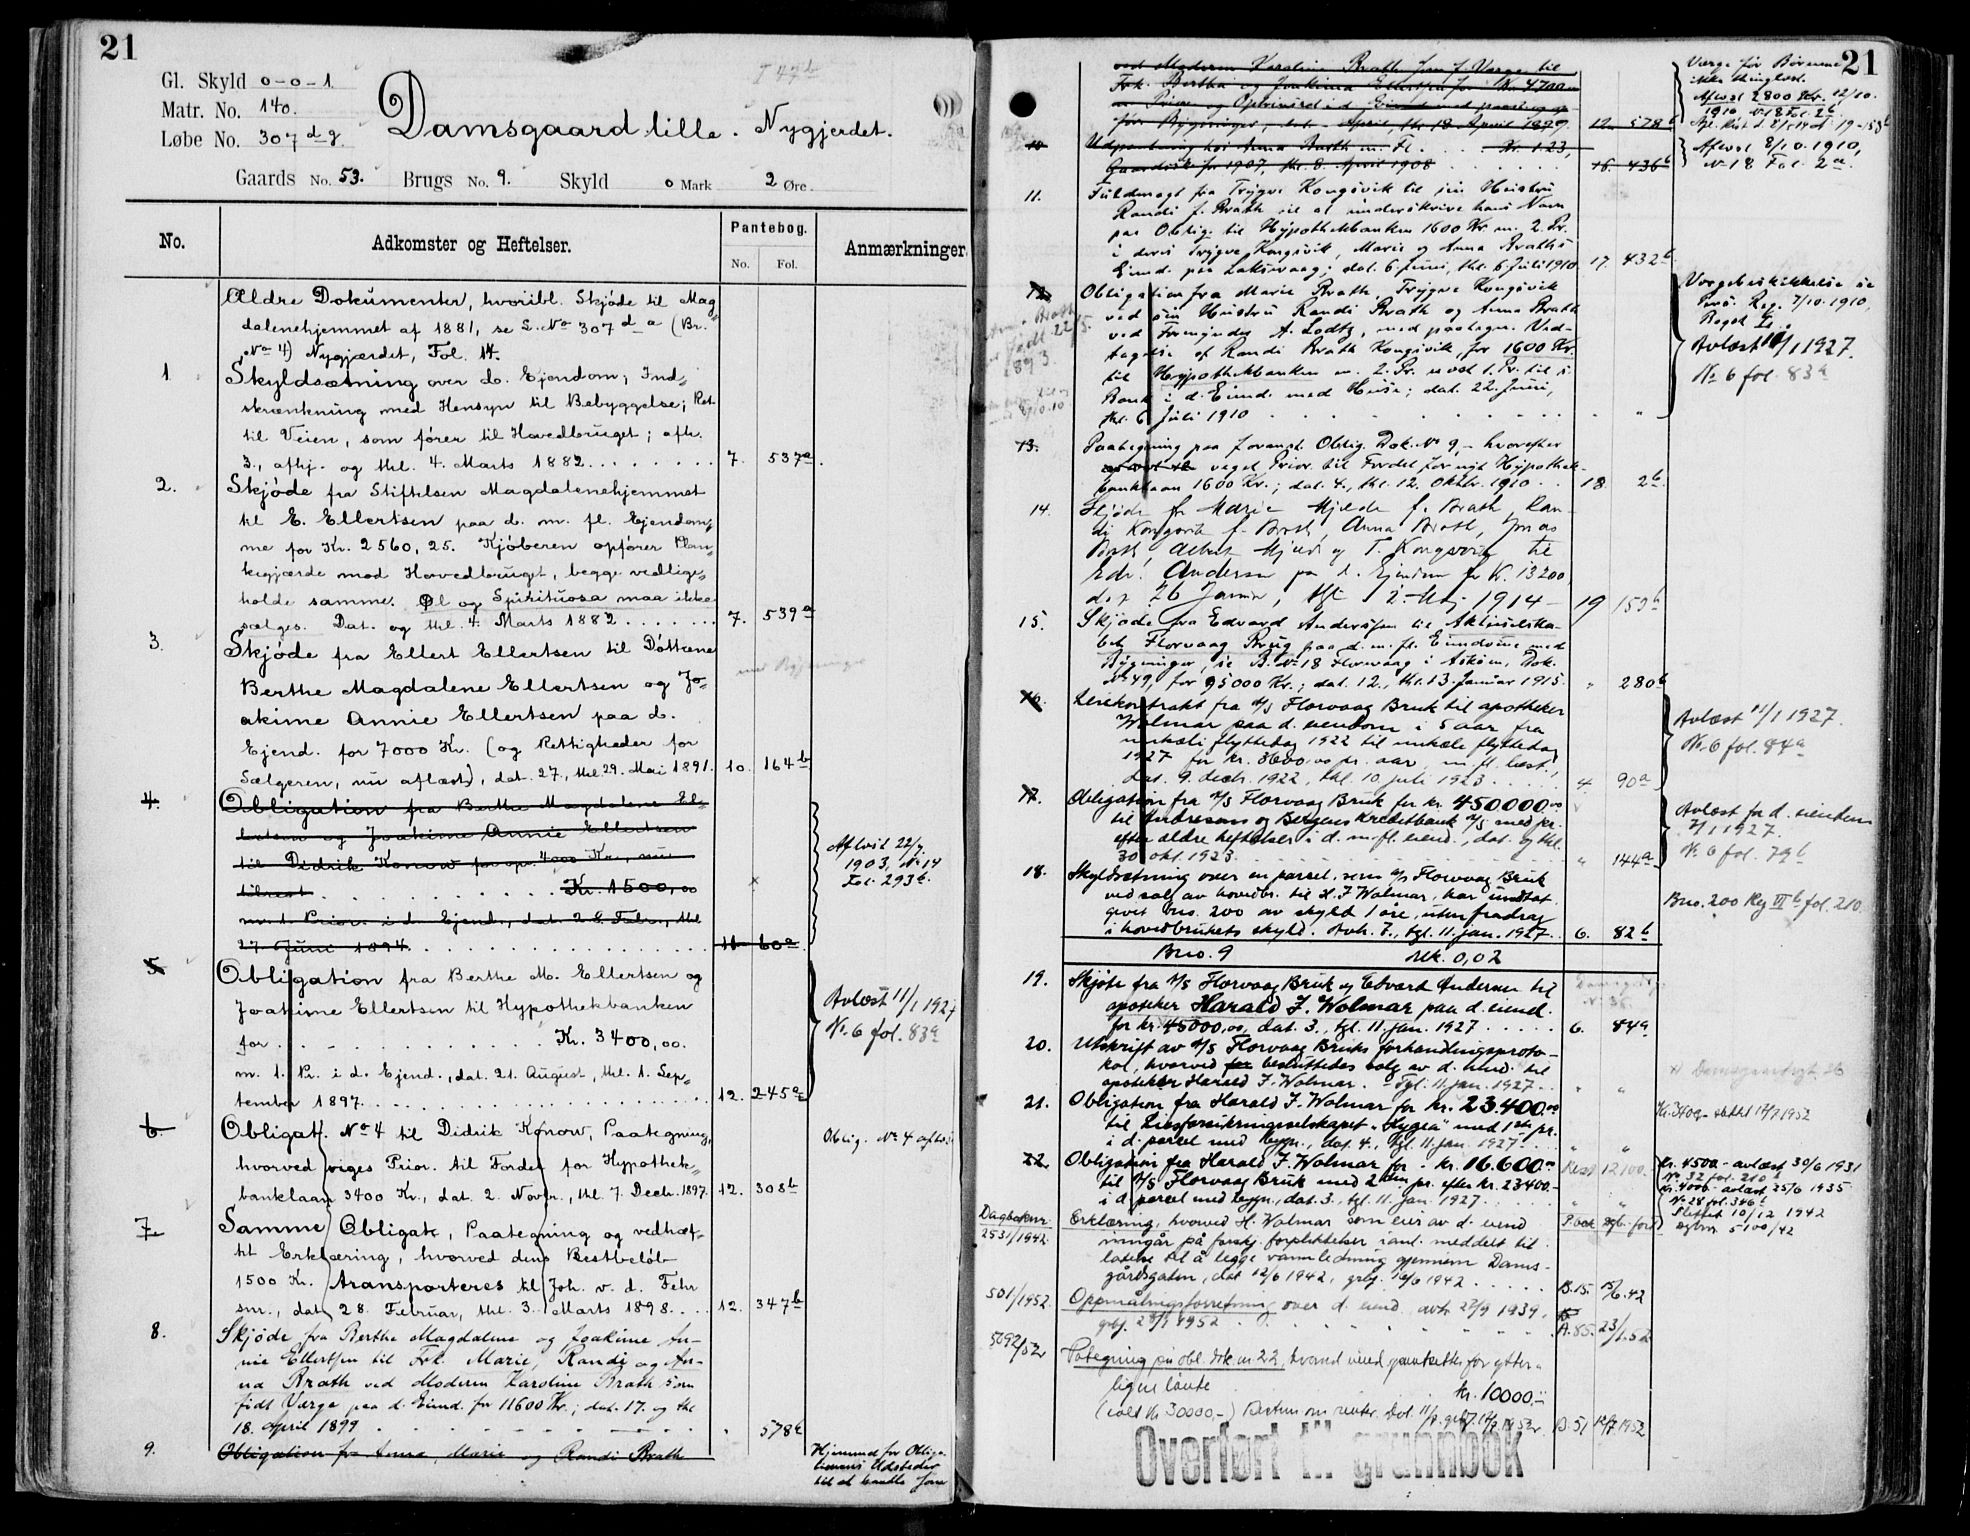 21
Gl. Skyld 0-0-1
Matr. No. 140.
Løbe No. 307 d g
Damsgaard lille. Nygjerdet.
Gaards No. 53. Brugs No. 9. Skyld 0 Mark 2 Øre.
No. Adkomster og Heftelser. Pantebog. No. Fol. Anmærkninger
Ældre Dokumenter, hvoribl. Skjøde til Mag„
dalenehjemmet af 1881, se L. No 307 d a (Br.
No 4) Nygjærdet, Fol. 14.
1. Skyldsætning over d. Ejendom; Ind„
skrænkning med Hensyn til Bebyggelse; Ret
til Veien, som fører til Hovedbruget; afh.
3., afhj. og thl. 4. Marts 1882. 7. 537a.
2. Skjøde fra Stiftelsen Magdalenehjemmet
til E. Ellertsen paa d. m. fl. Ejendom„
me for Kr. 2560,25. Kjøberen opfører Plan„
kegjærde mod Hovedbruget, begge vedlige„
holde samme. Øl og Spirituosa maa ikke
sælges. Dat. og thl. 4. Marts 1882 7. 539a
3. Skjøde fra Ellert Ellertsen til Døttrene
Berthe Magdalene Ellertsen og Jo„
akime Annie Ellertsen paa d.
Ejend. for 7000 Kr. (og Rettigheder for
Sælgeren, nu aflæst), dat. 27., thl. 29. Mai 1891. 10. 164b
4. Obligation fra Berthe Magdalene El„
lertsen og Joakime Annie Ellertsen
til Didrik Konow for opr. 4000 Kr., nu
tilrest Kr. 1500,00
m. 1. Prior. i d. Ejend., dat. 28. Febr., thl.
27. Juni 1894. 11 60a
Aflæst 22/7
1903, No 14
Fol. 293b.
5 Obligation fra Berthe M. Ellertsen og
Joakime Ellertsen til Hypothekbanken
for Kr. 3400,00.
m. 1. Pr. i d. Ejend., dat. 21. August, thl. 1. Sep„
tember 1897. 12. 245a
Avlæst 11/1 1927
No. 6 fol. 83a
6. Obligatf. No 4 til Didrik Konow, Paategning,
hvorved viges Prior. til Fordel for Hypothek„
banklaan 3400 Kr., dat. 2. Novbr., thl. 7. Decbr. 1897. 12. 308b
Oblig. No 4 aflæst
7. Samme Obligatf., Paategning og vedhæf„
tet Erklæring, hvorved dens Restbeløb
1500 Kr. transporteres til Joh. v. d. Fehr
snr., dat. 28. Februar, thl. 3. Marts 1898. 12. 347b
8. Skjøde fra Berthe Magdalene og Joakime An-
nie Ellertsen til Frk. Marie, Randi og An-
na Brath ved Moderen Karoline Brath som
født Værge paa d. Eiend. for 11600 Kr.; dat. 17. og thl
18. April 1899 578b
9. Obligation fra Anna, Marie og Randi Brath
Hjemmel for Obliga-
tionens Udsteder
til at handle som
21
ved Moderen Karoline Brath som f. Værge til
Frk. Bertha og Joakima Ellertsen for Kr. 4700
April, thl. 18. April 1899. 12. 578b
Værge for Børnene
ikke thinglæst.
Aflæst 2800 Kr. 12/10.
1910 No 18 Fol. 2b.
10 Udpantning hos Anna Brath m. Fl. Kr. 1.23,
for 1907, thl. 8. April 1908 16. 436b
Aflæst 8/10.1910,
No 18 Fol. 2a.
11. Fuldmagt fra Trygve Kongsvik til sin Hustru
Randi f. Brath til at underskrive hans Navn
paa Oblig. til Hypothekbanken 1600 Kr m. 2. Pr.
i deres Trygve Kongsvik, Marie og Anna Braths
Eiend. paa Laksevaag; dat. 6. Juni, thl. 6. Juli 1910 17. 432b
12. Obligation fra Marie Brath, Trygve Kongsvik
ved sin Hustru Randi Brath og Anna Brath
ved Formynder A. Lodtz, med paategn. Ved-
tagelse af Randi Brath Kongsvik, for 1600 Kr.
til Hypothekbanken m. 2. Pr. næst 1. Pr. til s.
Bank i d. Eiend. med Huse; dat. 22. Juni,
thl. 6. Juli 1910
Værgebeskikkelse se
Pers. Reg. 7/10.1910,
Avlæst 11/1 1927.
No 6 fol. 83a
13. Paategning paa foranst. Oblig. Dok. No 9, hvorefter
veget Prior. til Fordel for nyt Hypothek-
banklaan 1600 Kr.; dat. 4., thl. 12. Oktbr. 1910 18. 2b.
14. Skjøde fr. Marie Hjelde f. Brath, Ran-
di Kongsvik f. Brath, Anna Brath, Jonas
Brath, Albert Hjelde og T. Kongsvik til
Edv. Andersen pa d. Ejendom for Kr. 13200,
dat 26 Januar, thl 12. Maj 1914 19 153b
15. Skjøde fra Edvard Andersen til Aktieselska-
bet Florvaag Brug paa d. m. fl. Eiendomme med
Bygninger, se B. No 18 Florevaag i Askøen, Dok.
No 49, for 95000 Kr.; dat. 12., thl. 13. Januar 1915. " 280b
16. Leiekontrakt fra A/S Florvaag Bruk til apotheker
Wolmar paa d. eiendom i 5 aar fra
mikkeli flyttedag 1922 til mikkeli flyttedag
1927 for kr. 3600.00 pr. aar, m. fl. best.,
dat. 9. decbr. 1922, thl. 10. juli 1923 4. 90a
Avlæst 11/1 1927.
No. 6 fol. 84a
17. Obligation fra A/S Florvaag Bruk for kr. 450000.00
til Andresens og Bergens Kreditbank A/S med pr.
efter ældre heftelser i d. m. fl. eiend., dat. og thl.
30 okt. 1923 " 144a
Avlæst for d. eiendom
7/1 1927.
No. 6 fol. 79b
18. Skyldsetning over en parsel, som A/S Florvaag Bruk
ved salg av hovedbr. til H. F. Wolmar, har undtat
givet bno. 200 av skyld 1 øre, uten fradrag
i hovedbrukets skyld. Avh. 7., tgl. 11. jan. 1927 6. 82b
Bno. 200 Reg VI b fol. 210.
Bno. 9 Mk. 0,02
19. Skjøte fra A/S Florvaag Bruk og Edvard Andersen til
apoteker Harald F. Wolmar paa d. eiend.
for kr. 45000,00, dat. 3., tgl. 11. jan. 1927 6. 84a
20. Utskrift av A/S Florvaag Bruks forhandlingsproto-
kol, hvorved besluttedes salg av d. eiend. til
apoteker Harald F. Wolmar. Tgl. 11. jan. 1927 " "
Damsgaardsgt. 36
21. Obligation fra Harald F. Wolmar for kr. 23.400.00
til Livsforsikringsselskapet „Hygea“ med 1ste pr.
i d. parsel med bygn., dat. 4., tgl. 11. jan. 1927 " "
Kr. 3400,- slettet 12/7 1952
22. Obligation fra Harald F. Wolmar for kr. 16.600.00
til A/S Florvaag Bruk med 2den pr. efter kr. 23400.-
i d. parsel med bygn., dat. 3., tgl. 11. jan. 1927 " "
Rest 12100.
kr. 4500- avlæst 30/6 1931
No. 32 fol. 210
kr. 4000- avlæst 25/6 1935
No 28 fol. 346b
Slettet 10/12 1942
dgbnr. 5100/42
Dagboknr.
2531/1942. Erklæring, hvorved H. Wolmar som eier av d. eiend
inngår på forskj. forpliktelser i anl. meddelt til
latelse til å legge vannledning gjennem Dams-
gårdsgaten, dat 12/6 1942, grbj. 15/6 1942 B.15. 15/6.42
501/1952. Oppmålingsforretning over d. eiend. avh. 27/9 1939,
grbj. 23/1 1952 A.85. 23/1.52
5092/52 Påtegning på obl. dok. nr. 22, hvorved eiend. pantsettes for ytter-
ligere lånte kr. 10000.-
(ialt kr 30000,-) Bestem. om renter. Dat. 11/7, grbj. 12/7 1952. B.51 12/7 1952
Overført til grunnbok